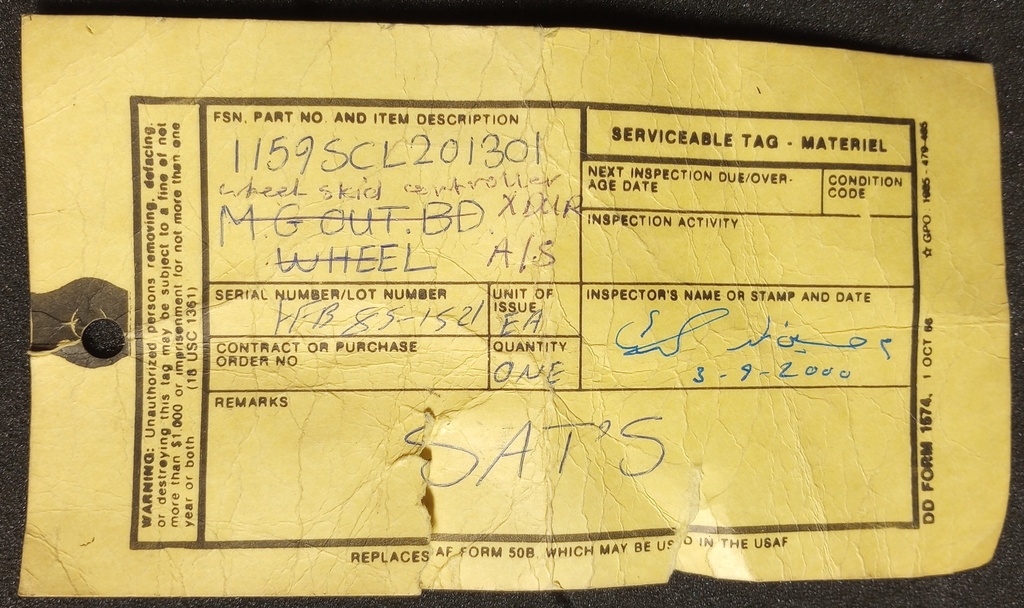 FSN, PART NO. AND ITEM DESCRIPTION
1159SCL201301
wheel skid controller
M.G OUT.BD. XDUR
WHEEL A/S
SERIAL NUMBER/LOT NUMBER
85-1521
UNIT OF ISSUE
EA
CONTRACT OR PURCHASE
ORDER NO
QUANTITY
ONE
SERVICEABLE TAG - MATERIEL
NEXT INSPECTION DUE/OVER-
AGE DATE
CONDITION
CODE
INSPECTION ACTIVITY
INSPECTOR'S NAME OR STAMP AND DATE
3-9-2000
REMARKS
SAT'S
REPLACES AF FORM 50B, WHICH MAY BE USED IN THE USAF
WARNING: Unauthorized persons removing, defacing,
or destroying this tag may be subject to a fine of not
more than $1,000 or imprisonment for not more than one
year or both (18 USC 1361)
DD FORM 1574, 1 OCT 66
☆ GPO 1985 - 479-485